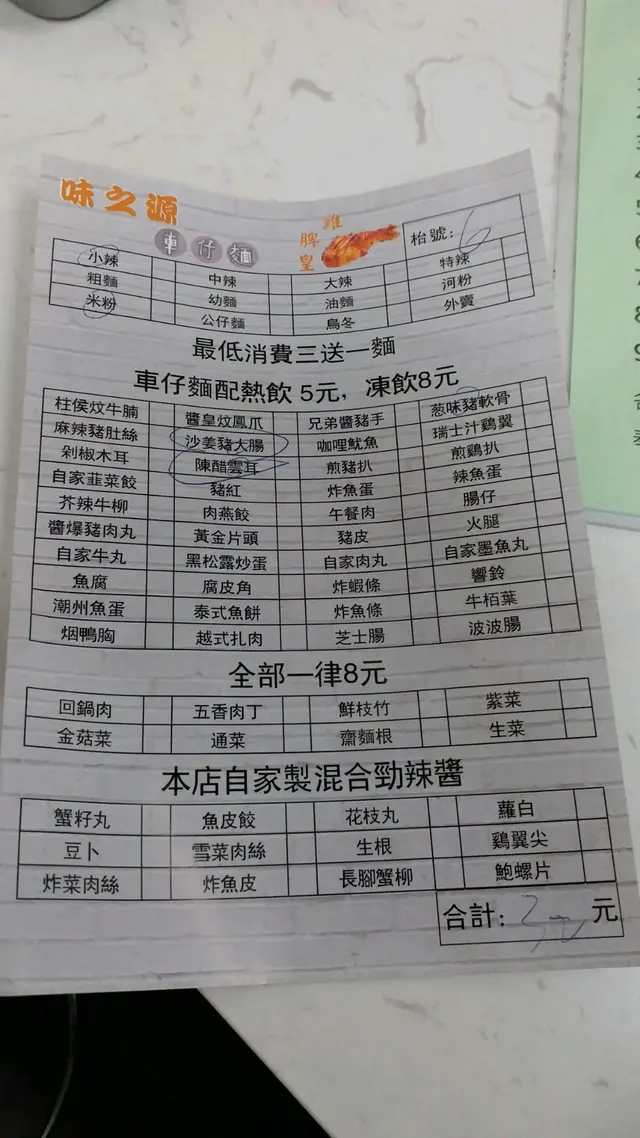 味之源
車仔麵
雞脾皇
枱號: 6
小辣 中辣 大辣 特辣
粗麵 幼麵 油麵 河粉
米粉 公仔麵 烏冬 外賣
最低消費三送一麵
車仔麵配熱飲 5元, 凍飲8元
柱侯炆牛腩 醬皇炆鳳爪 兄弟醬豬手 葱味豬軟骨
麻辣豬肚絲 沙姜豬大腸 咖哩魷魚 瑞士汁鷄翼
剁椒木耳 陳醋雲耳 煎豬扒 煎鷄扒
自家韮菜餃 豬紅 炸魚蛋 辣魚蛋
芥辣牛柳 肉燕餃 午餐肉 腸仔
醬爆豬肉丸 黃金片頭 豬皮 火腿
自家牛丸 黑松露炒蛋 自家肉丸 自家墨魚丸
魚腐 腐皮角 炸蝦條 響鈴
潮州魚蛋 泰式魚餅 炸魚條 牛栢葉
烟鴨胸 越式扎肉 芝士腸 波波腸
全部一律8元
回鍋肉 五香肉丁 鮮枝竹 紫菜
金菇菜 通菜 齋麵根 生菜
本店自家製混合勁辣醬
蟹籽丸 魚皮餃 花枝丸 蘿白
豆卜 雪菜肉絲 生根 鷄翼尖
炸菜肉絲 炸魚皮 長腳蟹柳 鮑螺片
合計: 元